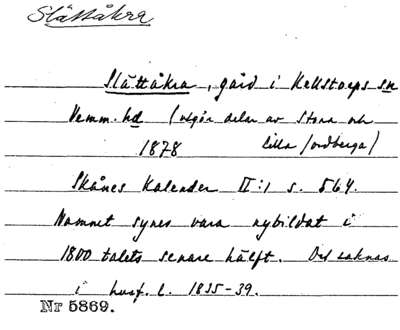 Slättåkra
Slättåkra, gård i Kellstorps sn
Vemm. hd (utgör delar av Stora och
1878 Lilla Jordberga)
Skånes Kalender II:1 s. 564.
Namnet synes vara nybildat i
1800 talets senare hälft. Det saknas
i husf. l. 1835-39.
Nr 5869.